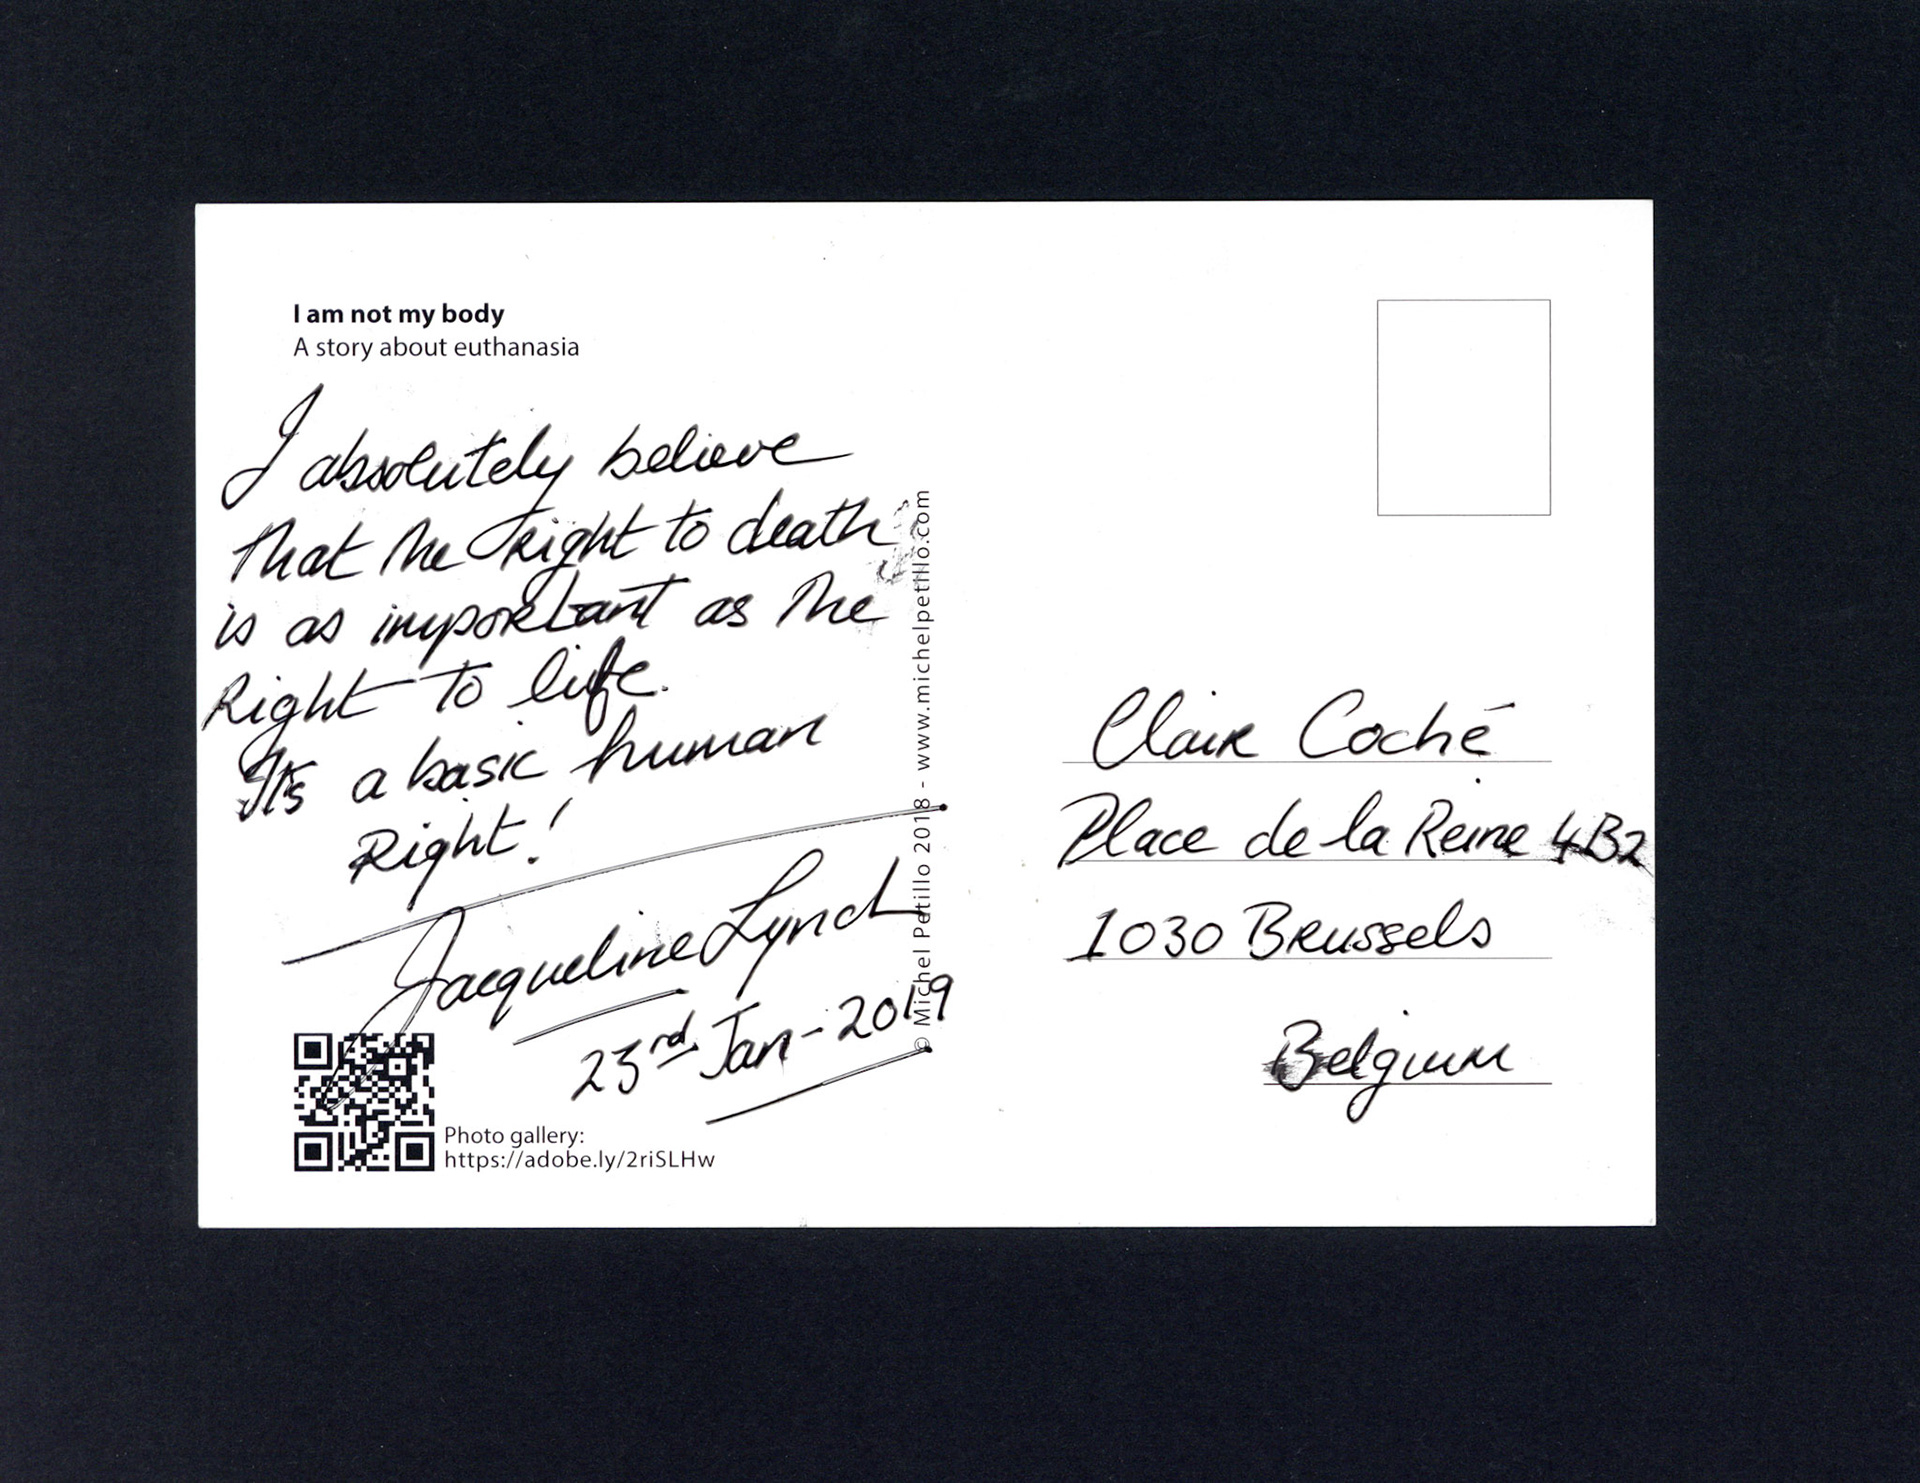 I am not my body
A story about euthanasia
I absolutely believe
that the right to death
is as important as the
Right to life.
It's a basic human
Right!
Jacqueline Lynch
23rd Jan - 2019
Photo gallery:
https://adobe.ly/2riSLHw
© Michel Petillo 2018 - www.michelpetillo.com
Clair Coché
Place de la Reine 4B2
1030 Brussels
Belgium